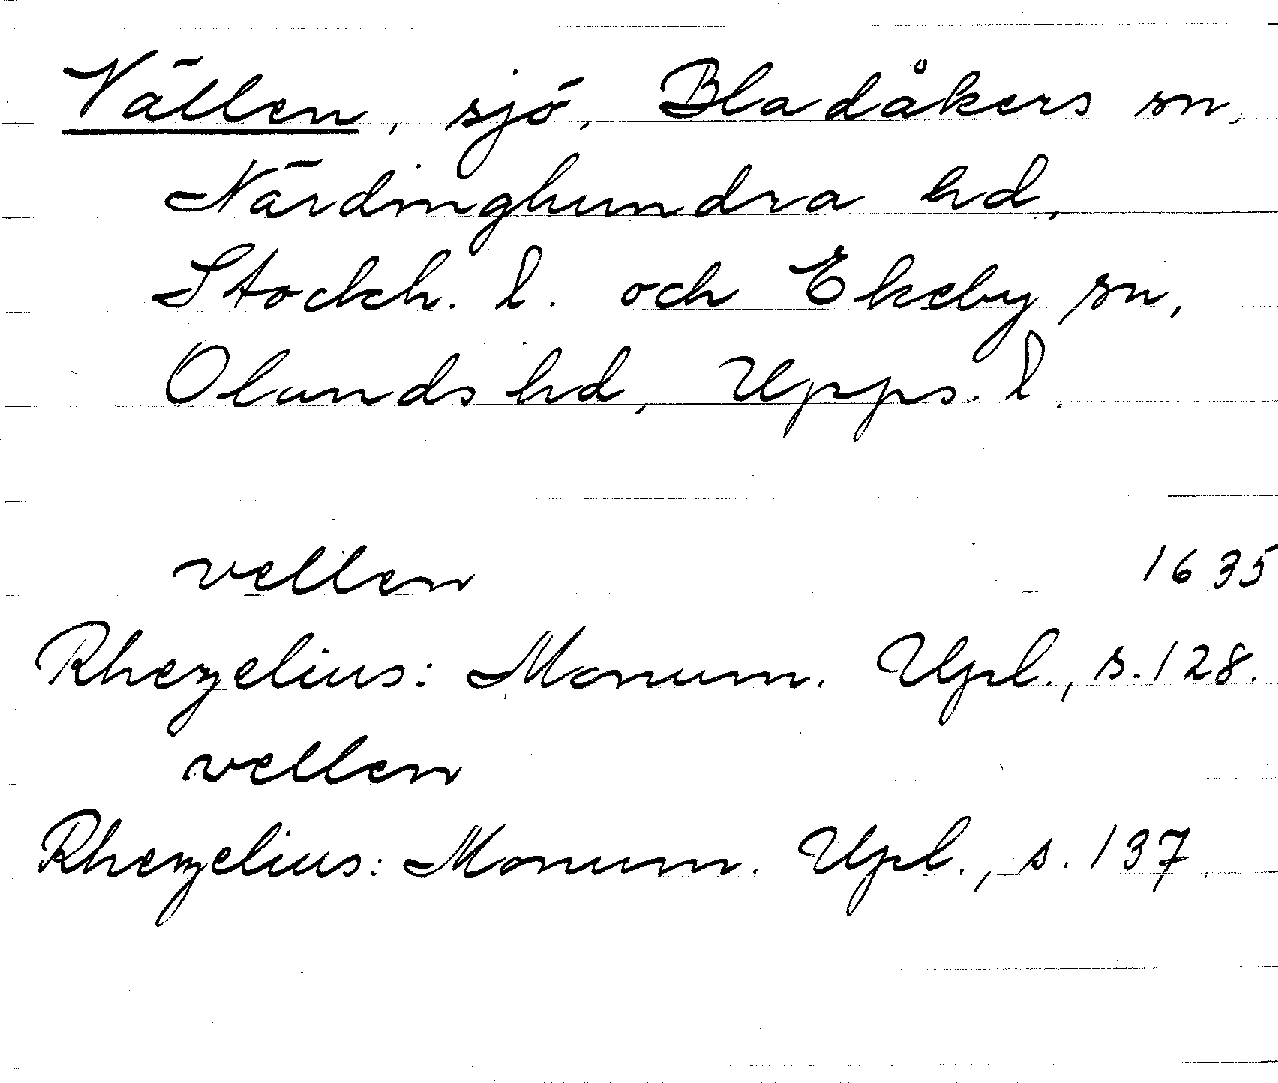 Vällen, sjö, Bladåkers sn,
Närdinghundra hd,
Stockh. l. och Ekeby sn,
Olands hd, Upps. l.
vellen 1635
Rhezelius: Monum. Upl., s. 128.
vellen
Rhezelius: Monum. Upl., s. 137.